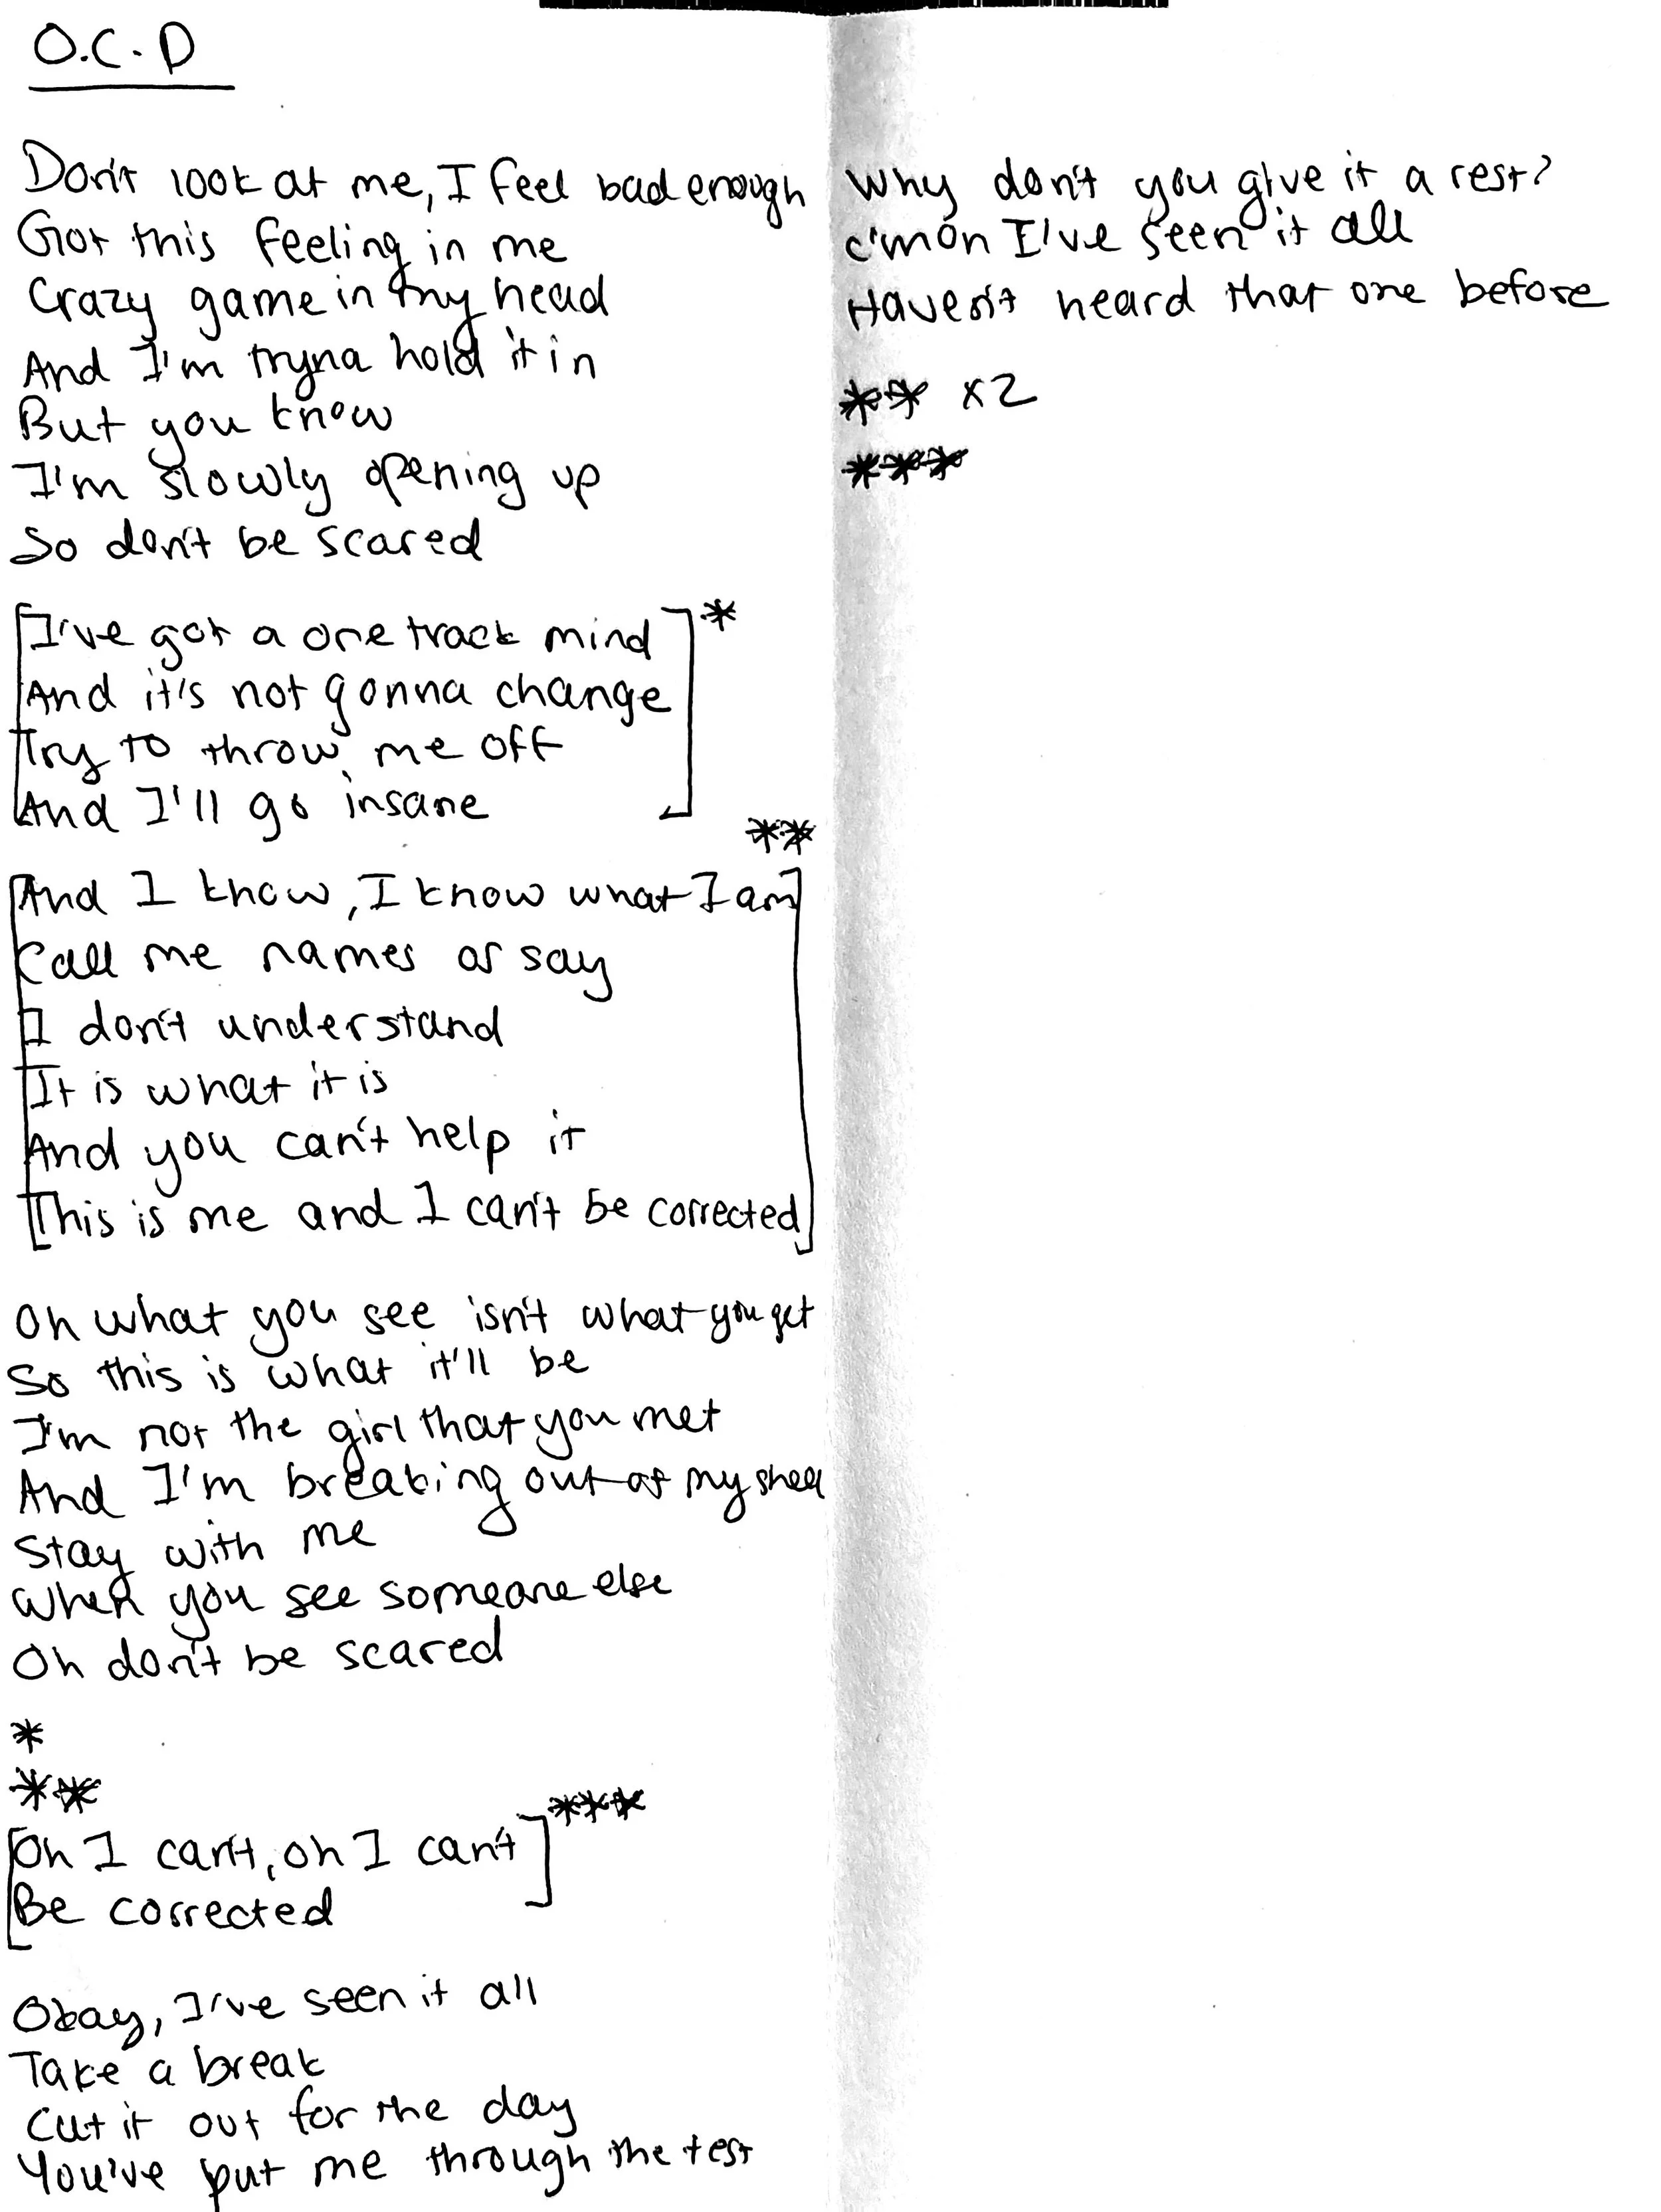 O.C.D
Don't look at me, I feel bad enough
Got this feeling in me
Crazy game in my head
And I'm tryna hold it in
But you know
I'm slowly opening up
So don't be scared
[I've got a one track mind]*
And it's not gonna change
Try to throw me off
And I'll go insane
**
[And I know, I know what I am
Call me names or say
I don't understand
It is what it is
And you can't help it
This is me and I can't be corrected]
Oh what you see isn't what you get
So this is what it'll be
I'm not the girl that you met
And I'm breaking out of my shell
Stay with me
When you see someone else
Oh don't be scared
*
**
[Oh I can't, oh I can't]***
Be corrected
Okay, I've seen it all
Take a break
Cut it out for the day
You've put me through the test
Why don't you give it a rest?
C'mon I've seen it all
Haven't heard that one before
** x2
***